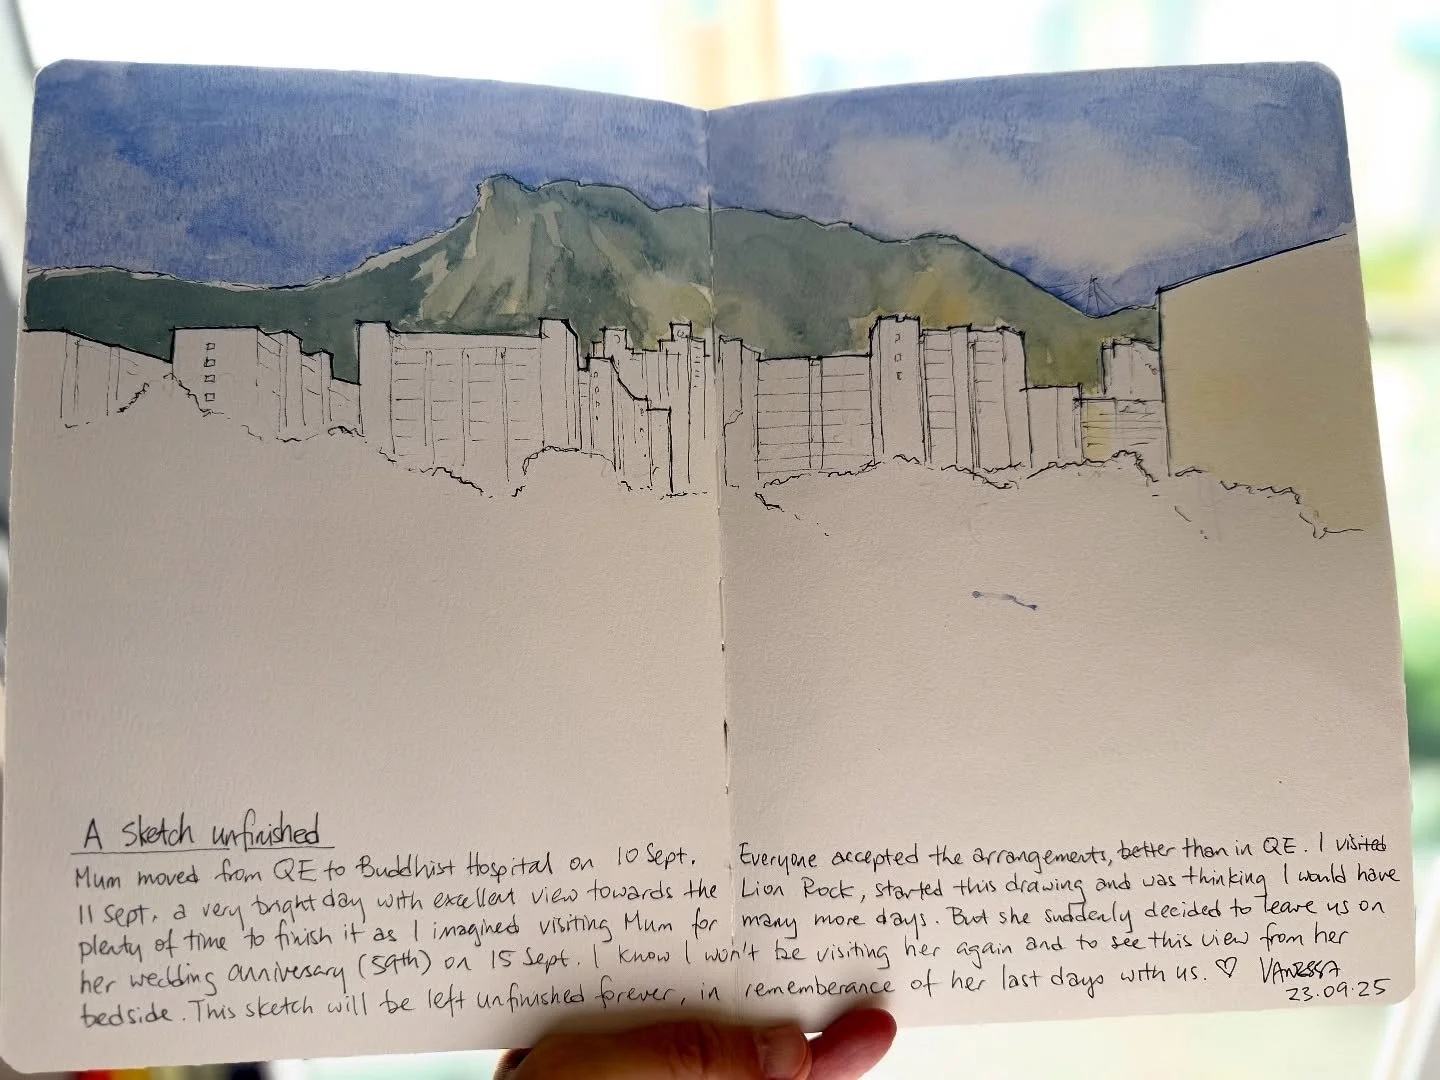 A sketch unfinished
Mum moved from QE to Buddhist Hospital on 10 Sept. Everyone accepted the arrangements, better than in QE. I visited
11 Sept, a very bright day with excellent view towards the Lion Rock, started this drawing and was thinking I would have
plenty of time to finish it as I imagined visiting Mum for many more days. But she suddenly decided to leave us on
her wedding anniversary (59th) on 15 Sept. I know I won't be visiting her again and to see this view from her
bedside. This sketch will be left unfinished forever, in rememberance of her last days with us. ♡ VANESSA
23.09.25